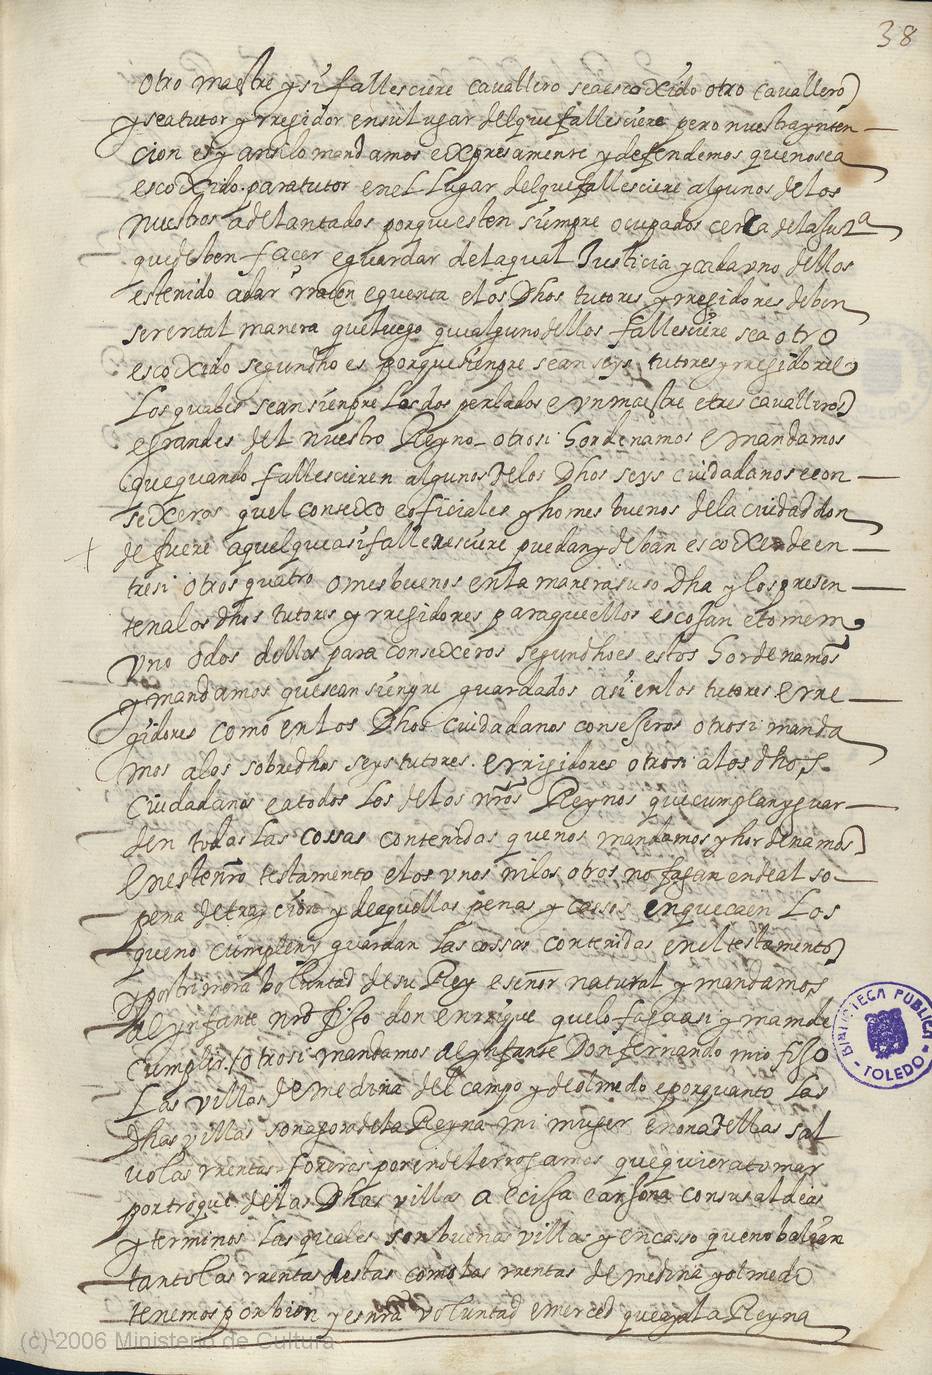 38
otro maestre y si fallesciere cavallero sea escoxido otro cavallero
y sea tutor y rregidor en su lugar del que fallesciere pero nuestra ynten
cion es y ansi lo mandamos expresamente y defendemos que no sea
escoxido para tutor en el lugar del que fallesciere algunos de los
nuestros adelantados porque esten siempre ocupados cerca de la justa
que deben facer e guardar de la qual Justicia y cada uno dellos
es tenido a dar rraçon e quenta e los Dhos tutores y rregidores deben
ser en tal manera que luego que alguno dellos fallesciere sea otro
escoxido segun dho es porque sienpre sean seys tutores y rregidores
Los quales sean sienpre Los dos perlados e un maestre e tres cavalleros
e grandes del nuestro Reyno otrosi hordenamos e mandamos
que quando fallescieren algunos de los Dhos seys ciudadanos e con
sexeros quel consexo e oficiales y homes buenos de la ciudad don
de fuere aquel que asi fallesciere puedan y deban escoxer de en
tre si otros quatro omes buenos en la manera suso Dha y los presen
ten a los dhos tutores y rregidores para que ellos escojan e tomen
uno dellos para consexeros segun dho es estos hordenamos
y mandamos que sean sienpre guardados asi en los tutores e rre
gidores como en los Dhos ciudadanos consejeros otrosi manda
mos a los sobredhos seys tutores e rrigidores otrosi a los dhos
Ciudadanos e a todos los de los nros Reynos que cumplan y guar
den todas las cossas contenidas que nos mandamos y hordenamos
en este nro testamento e los unos ni los otros no fagan ende al so
pena de trayçion y de aquellas penas y cassos en que caen Los
que no cumplen y guardan las cossas contenidas en el testamento
y postrimera boluntad de su Rey e señor natural y mandamos
al ynfante nro fijo don enrrique que lo faga asi y mande
cumplir / otrosi mandamos al ynfante Don fernando mio fijo
Las villas de medina del campo y de olmedo e por quanto las
Dhas villas son agora de la Reyna mi muger en ellas sal
vo las rrentas foreras por ende le rrogamos que quiera tomar
por troque de las Dhas villas a ecija e arjona con sus aldeas
y terminos las quales son buenas villas y en caso que no balian
tanto las rrentas destas como las rrentas de medina y olmedo
tenemos por bien y es nra voluntad e merced que aya la Reyna
BIBLIOTECA PUBLICA - TOLEDO -
(c) 2006 Ministerio de Cultura